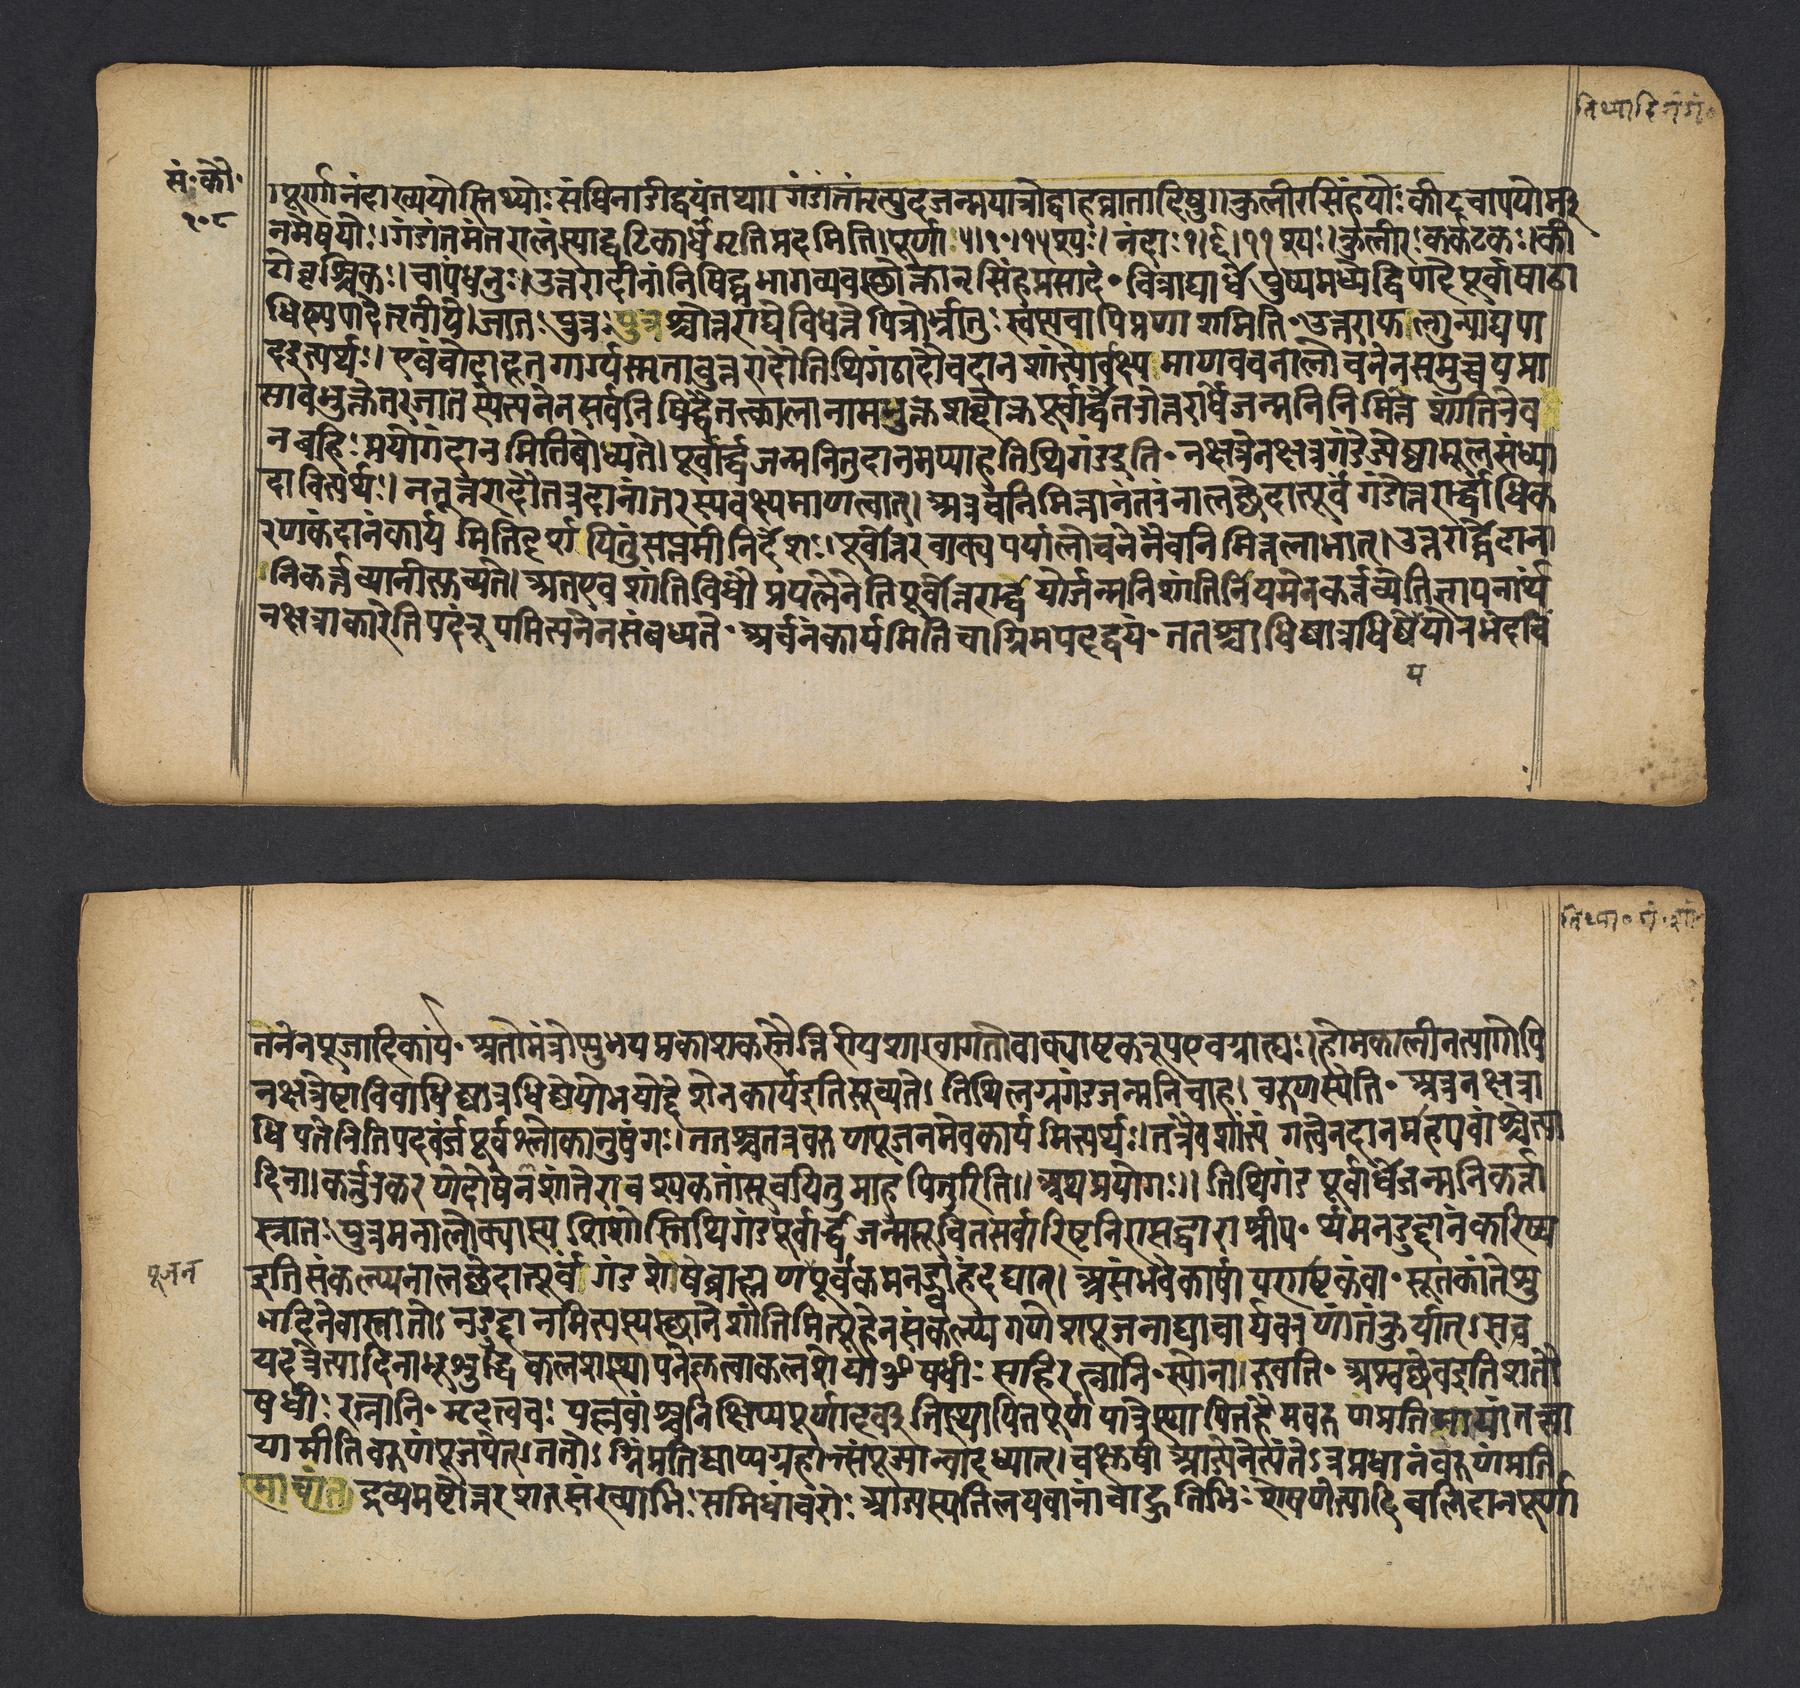 तिथ्यादिगं॰
सं॰ कौ॰
१०८
।पूर्णानंदाख्ययोस्तिथ्योः संधिर्नाडीद्वयंतथा। गंडांतंमृत्युदंजन्मयात्रोद्वाहव्रतादिषु॥ कुलीरसिंहयोः कीटचापयोर्मी
नमेषयोः।गंडांतमंतरालंस्याद्घटिकार्धंमृतिप्रदमिति॥पूर्णाः५।१०।१५एषः। नंदाः१।६।११एषः।कुलीरःकर्कटकः।की
टोवृश्चिकः।चापंधनुः।उत्तरादीनांनिषिद्धभागव्यवस्थोक्तानृसिंहप्रसादे॰ चित्राद्यार्धेपुष्यमध्येद्विपादेपूर्वाषाढा
धिष्ण्यपादेतृतीये।जातः पुत्रः पुत्रश्चोत्तराद्येविधत्तेपित्रोर्भ्रातुः स्वस्यवापिप्रणाशमिति॰ उत्तराफाल्गुन्याद्यपा
दइत्यर्थः। एवंचोदाहृतगार्ग्यस्मृतावुत्तरादौतिथिगंडादौचदानशांत्योर्वक्ष्यमाणवचनालोचनेनसमुच्चयप्रा
प्तावभुक्तेतरजातस्येत्यनेनसर्वनिषिद्धैतत्कालानामभुक्तशब्दोक्तपूर्वार्द्धेतरोत्तरार्धेजन्मनिनिमित्ते शांतिरेव
नबहिः प्रयोगंदानमितिबोध्यते। पूर्वार्द्धजन्मनितुदानमप्याहतिथिगंडइति॰ नक्षत्रेनक्षत्रगंडेज्येष्ठामूलसंध्या
दावित्यर्थः। नतूत्तरादौतत्रदानांतरस्यवक्ष्यमाणत्वात्। अत्रचनिमित्तानंतरंनालच्छेदात्पूर्वं गंडोत्तरार्द्धाधिक
रणकंदानंकार्यमितिदर्शयितुंसप्तमीनिर्देशः। पूर्वोत्तरवाक्यपर्यालोचनेनैवनिमित्तलाभात्।उत्तरार्द्धेदाना
निकर्त्तव्यानीत्युच्यते। अतएवशांतिविधौ प्रयत्नेनेतिपूर्वोत्तरार्द्धयोर्जन्मनिशांतिर्नियमेनकर्त्तव्येतिज्ञापनार्थं
नक्षत्राकारेतिपदंरूपमित्यनेनसंबध्यते॰ अर्चनंकार्यमितिचाग्रिमपदद्वयं॰ ततश्चाधिष्ठात्रधिष्ठेययोरभेदविं
प
तिथ्या॰ गं॰ शां॰
तनेनपूजादिकार्यं॰ अतोमंत्रोप्युभयप्रकाशकस्तैत्तिरीयशाखागतोवाक्याष्टकरूपएवग्राह्यः।होमकालीनत्यागोपि
नक्षत्रेष्टाविवाधिष्ठात्रधिष्ठेययोभयोद्देशेनकार्यइतिसूच्यते। तिथिलग्नगंडजन्मनिचाह। वरुणस्येति॰ अत्रनक्षत्रा
धिपतेरितिपदवर्जंपूर्वश्लोकानुषंगः। ततश्चतत्रवरुणपूजनमेवकार्यमित्यर्थः। तत्रैवशांत्यंगत्वेनदानमाहयवांश्चेत्या
दिना।कर्त्तुरकरणेदोषेनशांतेरावश्यकतांसूचयितुमाहपितुरिति॥ अथप्रयोगः॥ तिथिगंडपूर्वार्धेजन्मनिकर्त्ता
स्नातः पुत्रमनालोक्यास्य शिशोस्तिथिगंडपूर्वार्द्धजन्मसूचितसर्वारिष्टनिरासद्वाराश्रीप॰ र्थमनडुद्दानंकरिष्य
इतिसंकल्प्यनालच्छेदात्पूर्वं गंडशेषेब्राह्मणपूर्वकमनड्वाहंदद्यात्। असंभवेकार्षापणाष्टकंवा॰ सूतकांतेशु
पूजन
भदिनेवास्नातोऽनडुद्दानमित्यस्यस्थानेशांतिमित्यूहेनसंकल्प्य गणेशपूजनाद्याचार्यवरणांतंकुर्यात्।सच
यदत्रेत्यादिनाभूशुद्धिकलशस्थापनेकृत्वाकलशेयाओषधीः साहिरत्नानि॰ स्योना।रुवति॰ अश्वत्थेवइतिशतौ
षधीः रत्नानि॰ मृदत्वचः पल्लवांश्चनिक्षिप्यपूर्णादर्वइतिस्थापितपूर्णपात्रेस्थापितहैमवरुणप्रतिमायांतत्त्वा
यामीतिवरुणंपूजयेत्।ततोऽग्निंप्रतिष्ठाप्यग्रहान्संपूज्यान्वादध्यात्। चक्षुषी आज्येनेत्यंतेऽत्रप्रधानंवरुणंप्रति
माषांतद्रव्यमष्टोत्तरशतसंख्याभिः समिधांचरोः आज्यस्यतिलयवानांचाहुतिभिः शेषेणेत्यादिबलिदानपूर्णा